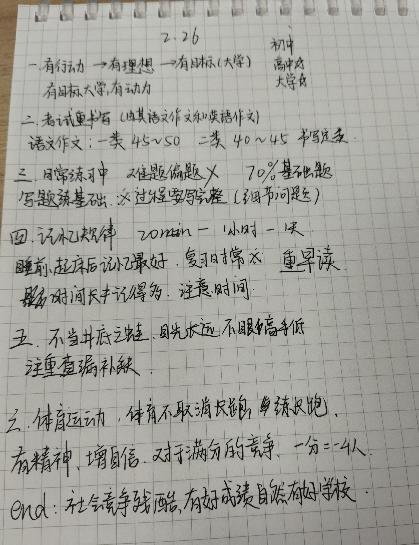 2.26
初中
高中☆
大学☆
一.有行动→有理想→有目标(大学)
有目标大学,有动力
二.考试重书写(尤其语文作文和英语作文)
语文作文:一类45~50 二类40~45 书写完美
三.日常练习中 难题偏题× 70%基础题
写题练基础.※过程要写完整(细节问题)
四.记忆规律 20min—1小时—1天
睡前,起床后记忆最好.复习时常 重早读
时间长才记得多.注意时间.
五.不当井底之蛙.目光长远.不眼高手低
注重查漏补缺.
六.体育运动.体育不取消长跑,练长跑.
有精神、增自信.对于满分的竞争、一分=-4人
end:社会竞争残酷,有好成绩自然有好学校.